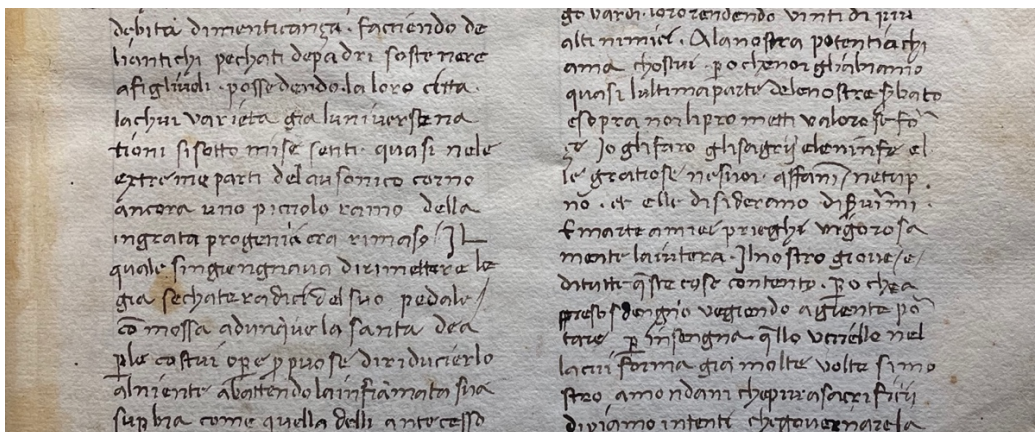 debita dimenticança. faciendo de
liantichi pechati depadri sostenere
afigliuoli. possedendo. la loro citta.
lachui varieta gia luniverse na
tioni sisotto mise senti. quasi nele
extreme parti del ausonico corno
ancora uno picciolo ramo della
ingrata progenia era rimaso / IL
quale singiengnava dirimettere le
gia sechate radici del suo pedale /
cō mossa adunque la santa dea
ꝑle costui oꝑe ꝓpuose diriducierlo
alniente abattendo lainfiāmata sua
suꝑbia come quella delli antecesso
gouardi. loro rendendo vinti di piu
alti nimici. Ala nostra potentia chi
ama chostui. ꝑo chenoi gliabiamo
quasi lultima parte delenostre
esopra noi lipro metti valorose fo
ze Io glifaro glisagrij eleninfe el
le gratiose nesuoi. affani / netup
no. et elle disiderano
E marte amiei prieghi vigorosa
mente laiutera. Il nostro giove / e /
ditutti q̄ste cose contento. ꝑo che a
preso sdengio vegiendo agiente
tare ꝑ insengna q̄llo ucciello nel
lacui forma gia molte volte simo
stro, amondani chepura sacrificii
diviamo intenti chegovernare la